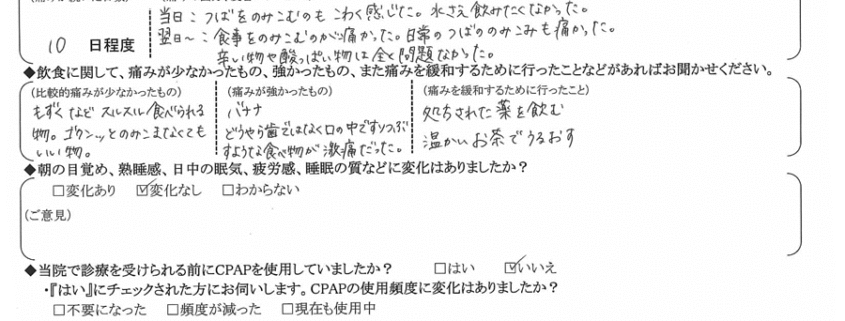 当日：つばをのみこむのもこわく感じた。水さえ飲みたくなかった。
10 日程度
翌日～：食事をのみこむのが痛かった。日常のつばののみこみも痛かった。
辛い物や酸っぱい物は全く問題なかった。
◆飲食に関して、痛みが少なかったもの、強かったもの、また痛みを緩和するために行ったことなどがあればお聞かせください。
(比較的痛みが少なかったもの)
もずくなどスルスル食べられる
物。ゴクンッとのみこまなくても
いい物。
(痛みが強かったもの)
バナナ
どうやら歯ではなく口の中ですりつぶ
すような食べ物が激痛だった。
(痛みを緩和するために行ったこと)
処方された薬を飲む
温かいお茶でうるおす
◆朝の目覚め、熟睡感、日中の眠気、疲労感、睡眠の質などに変化はありましたか？
□変化あり ☑変化なし □わからない
(ご意見)
◆当院で診療を受けられる前にCPAPを使用していましたか？ □はい ☑いいえ
・『はい』にチェックされた方にお伺いします。CPAPの使用頻度に変化はありましたか？
□不要になった □頻度が減った □現在も使用中